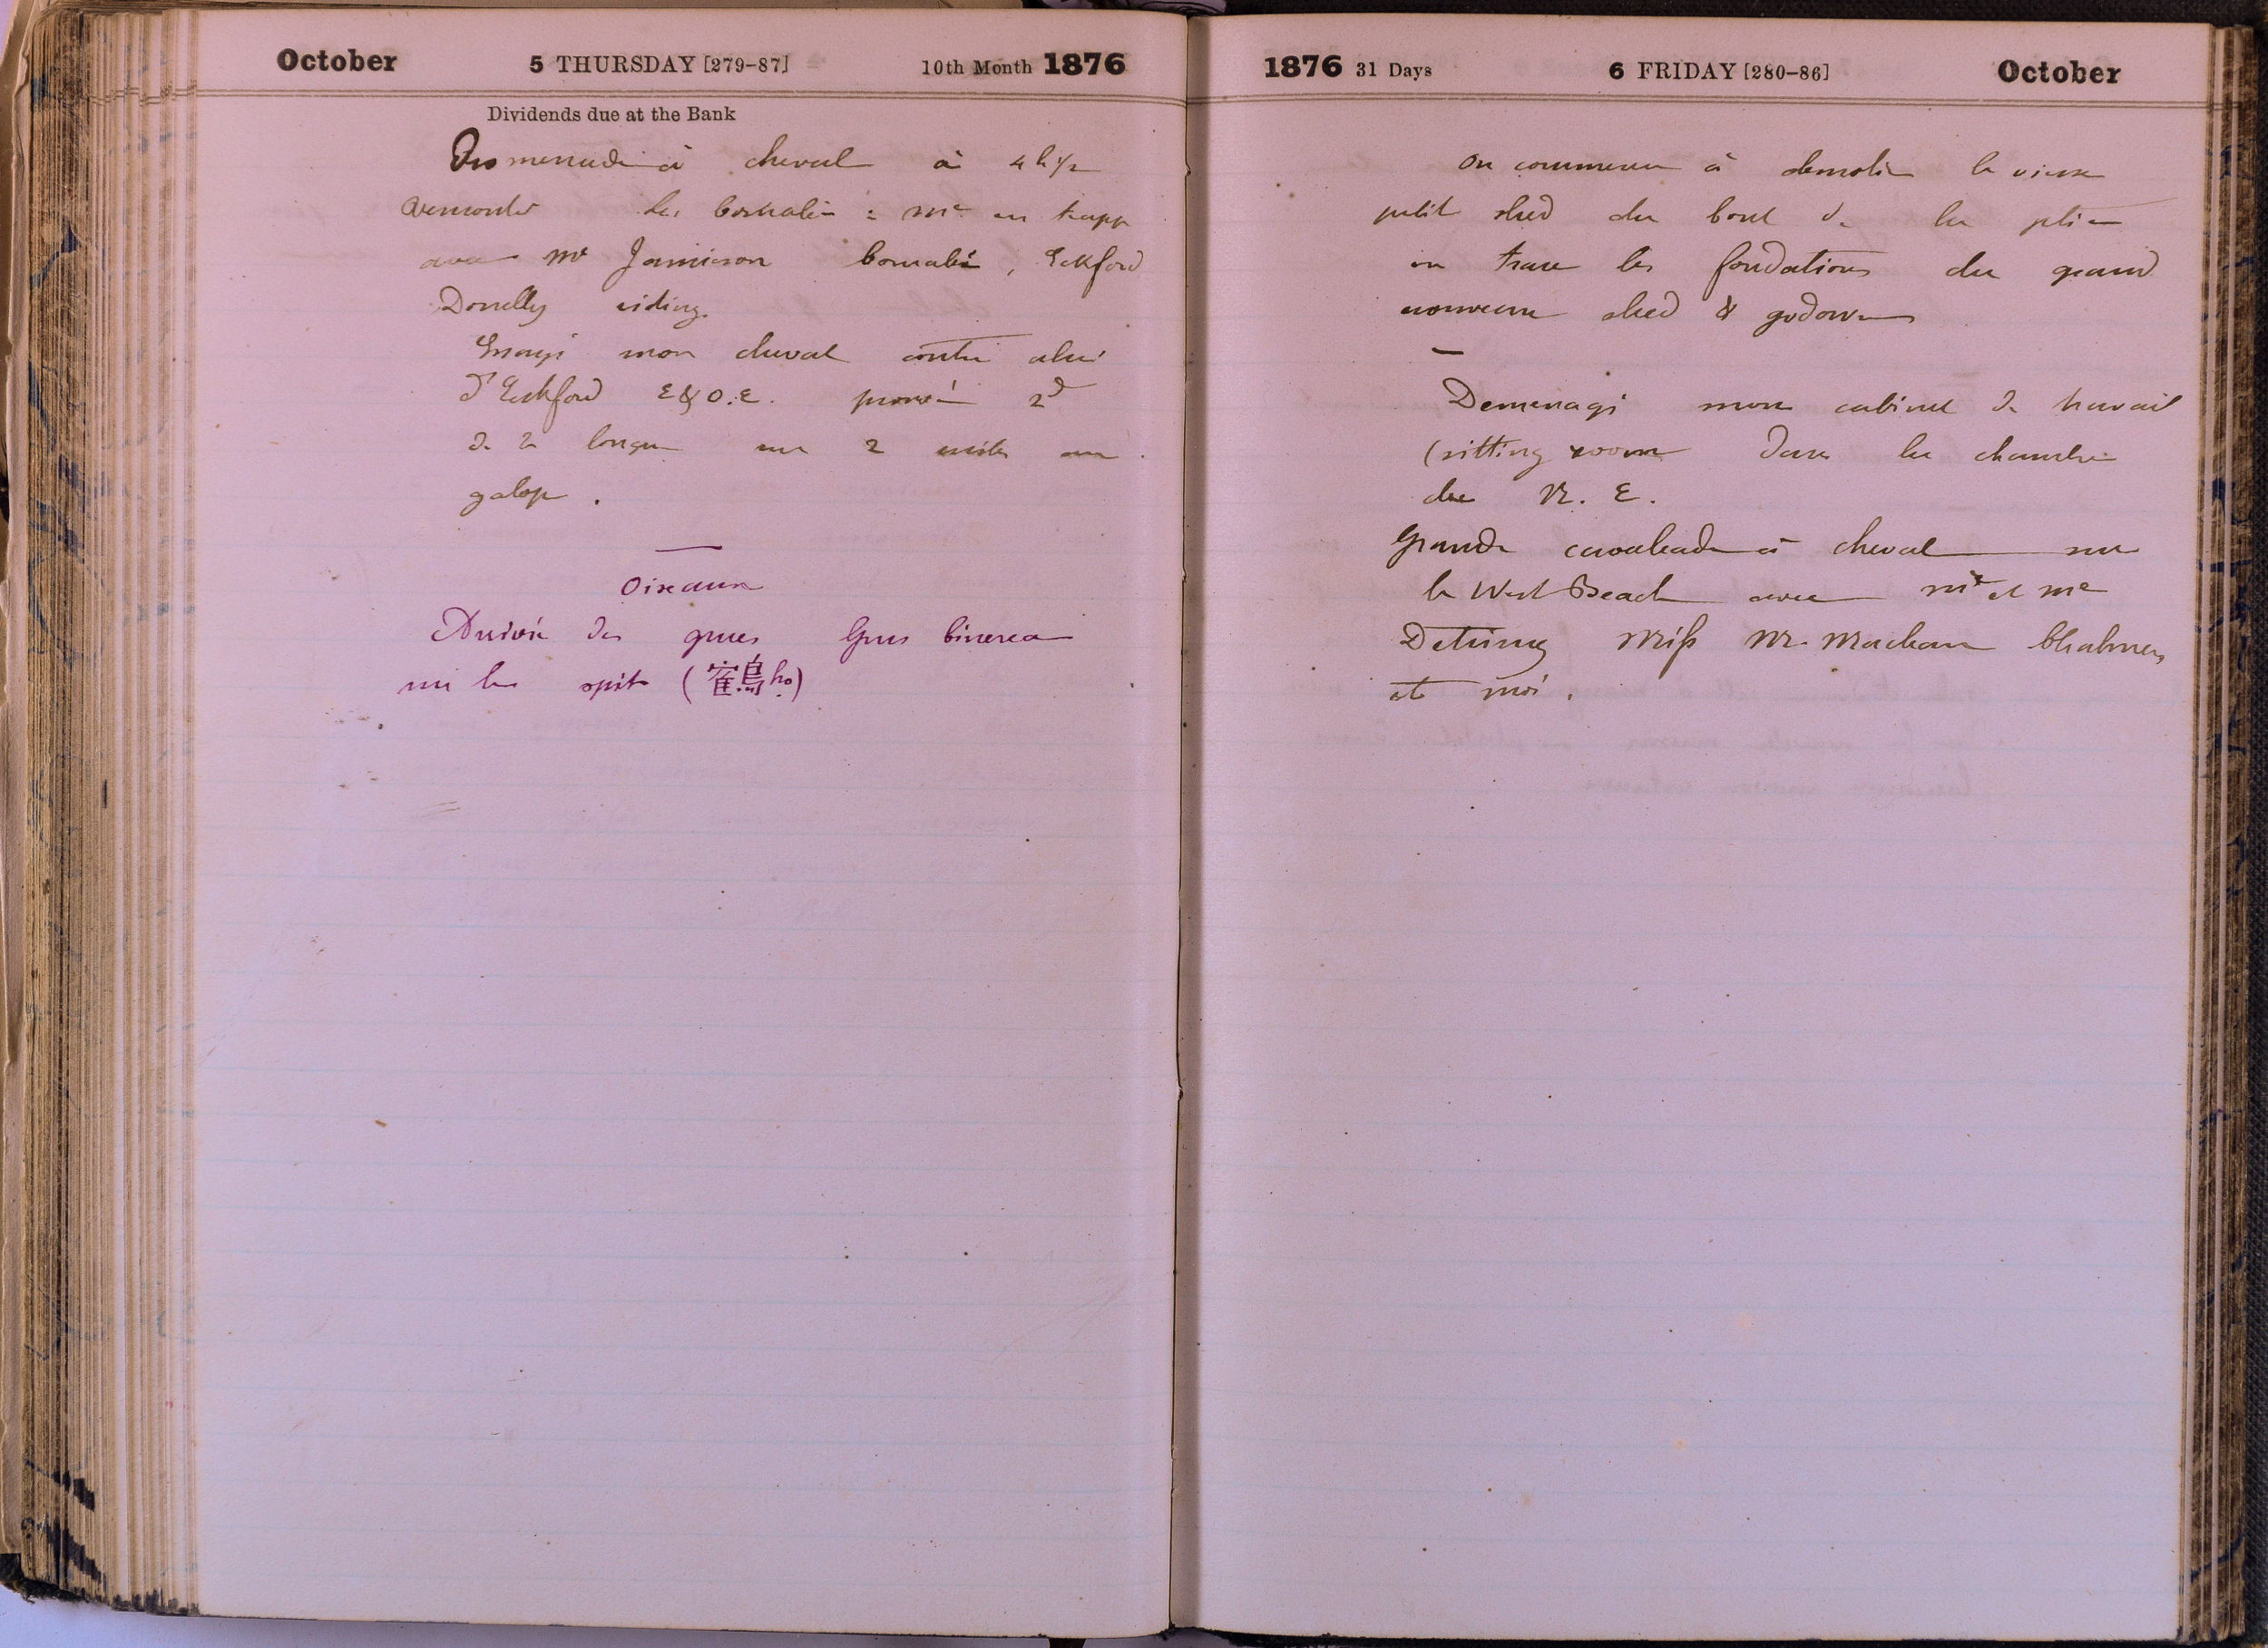 October 5 THURSDAY [279-87] 10th Month 1876
Dividends due at the Bank
Promenade à cheval à 4 h 1/2
rencontré les Cornabé = Me en trapp
avec Mr Jamieson Cornabé, Eckford
Donelly riding.
Essayé mon cheval contre celui
d'Eckford E & O.E. 2d
de la longue sur 2 miles au
galop.
Oiseaux
Arrivée des grues Grus Cinerea
sur le spit (鶴 ho)
1876 31 Days 6 FRIDAY [280-86] October
On commence à demolir le vieux
petit shed du bout de la
on trace les fondations du grand
nouveau shed & godown
Demenagé mon cabinet de travail
(sitting room dans la chambre
du N. E.
Grande cavalcade à cheval sur
le West Beach avec Mr et Me
Detring Miss M. Maclean Chalmers
et moi.